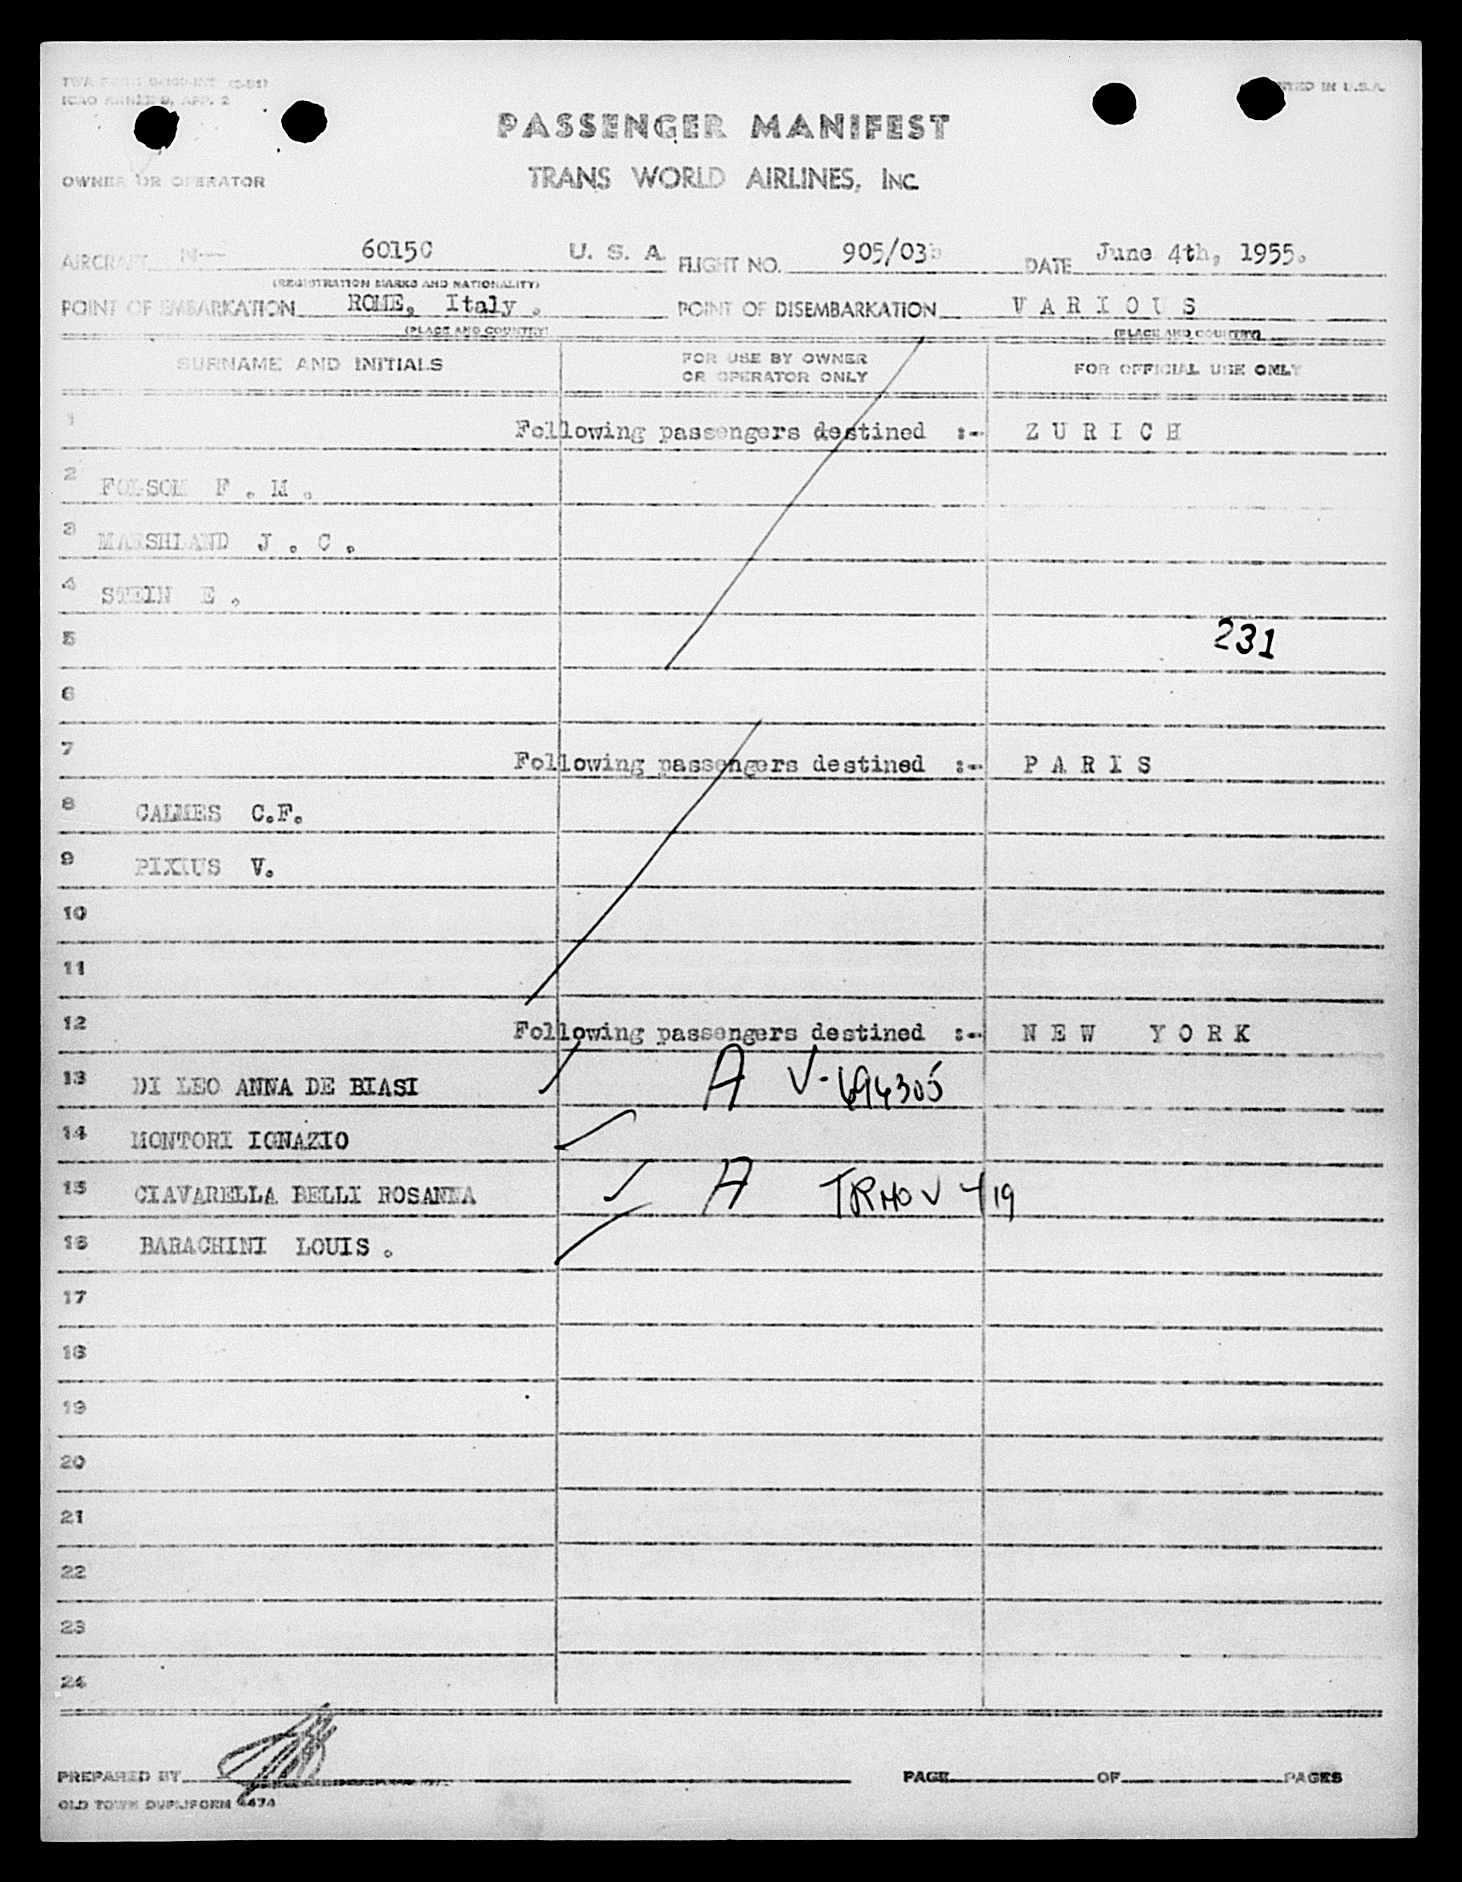 TWA FORM
ICAO ANNEX 9, APP. 2
PRINTED IN U.S.A.
PASSENGER MANIFEST
OWNER OR OPERATOR
TRANS WORLD AIRLINES, INC.
AIRCRAFT N-- 6015C U. S. A. FLIGHT NO. 905/03 DATE June 4th, 1955.
(REGISTRATION MARKS AND NATIONALITY)
POINT OF EMBARKATION ROME, Italy . POINT OF DISEMBARKATION V A R I O U S
(PLACE AND COUNTRY) (PLACE AND COUNTRY)
SURNAME AND INITIALS FOR USE BY OWNER OR OPERATOR ONLY FOR OFFICIAL USE ONLY
1 Following passengers destined :-- Z U R I C H
2 FOLSOM F . M .
3 MARSHLAND J . C .
4 STEIN E .
5 231
6
7 Following passengers destined :-- P A R I S
8 CALMES C.F.
9 PIXIUS V.
10
11
12 Following passengers destined :-- N E W Y O R K
13 DI LEO ANNA DE BIASI A V-696305
14 MONTORI IGNAZIO
15 CIAVARELLA BELLI ROSANNA A
16 BARACHINI LOUIS .
17
18
19
20
21
22
23
24
PREPARED BY PAGE OF PAGES
OLD TOWN DUPLIFORM 4474